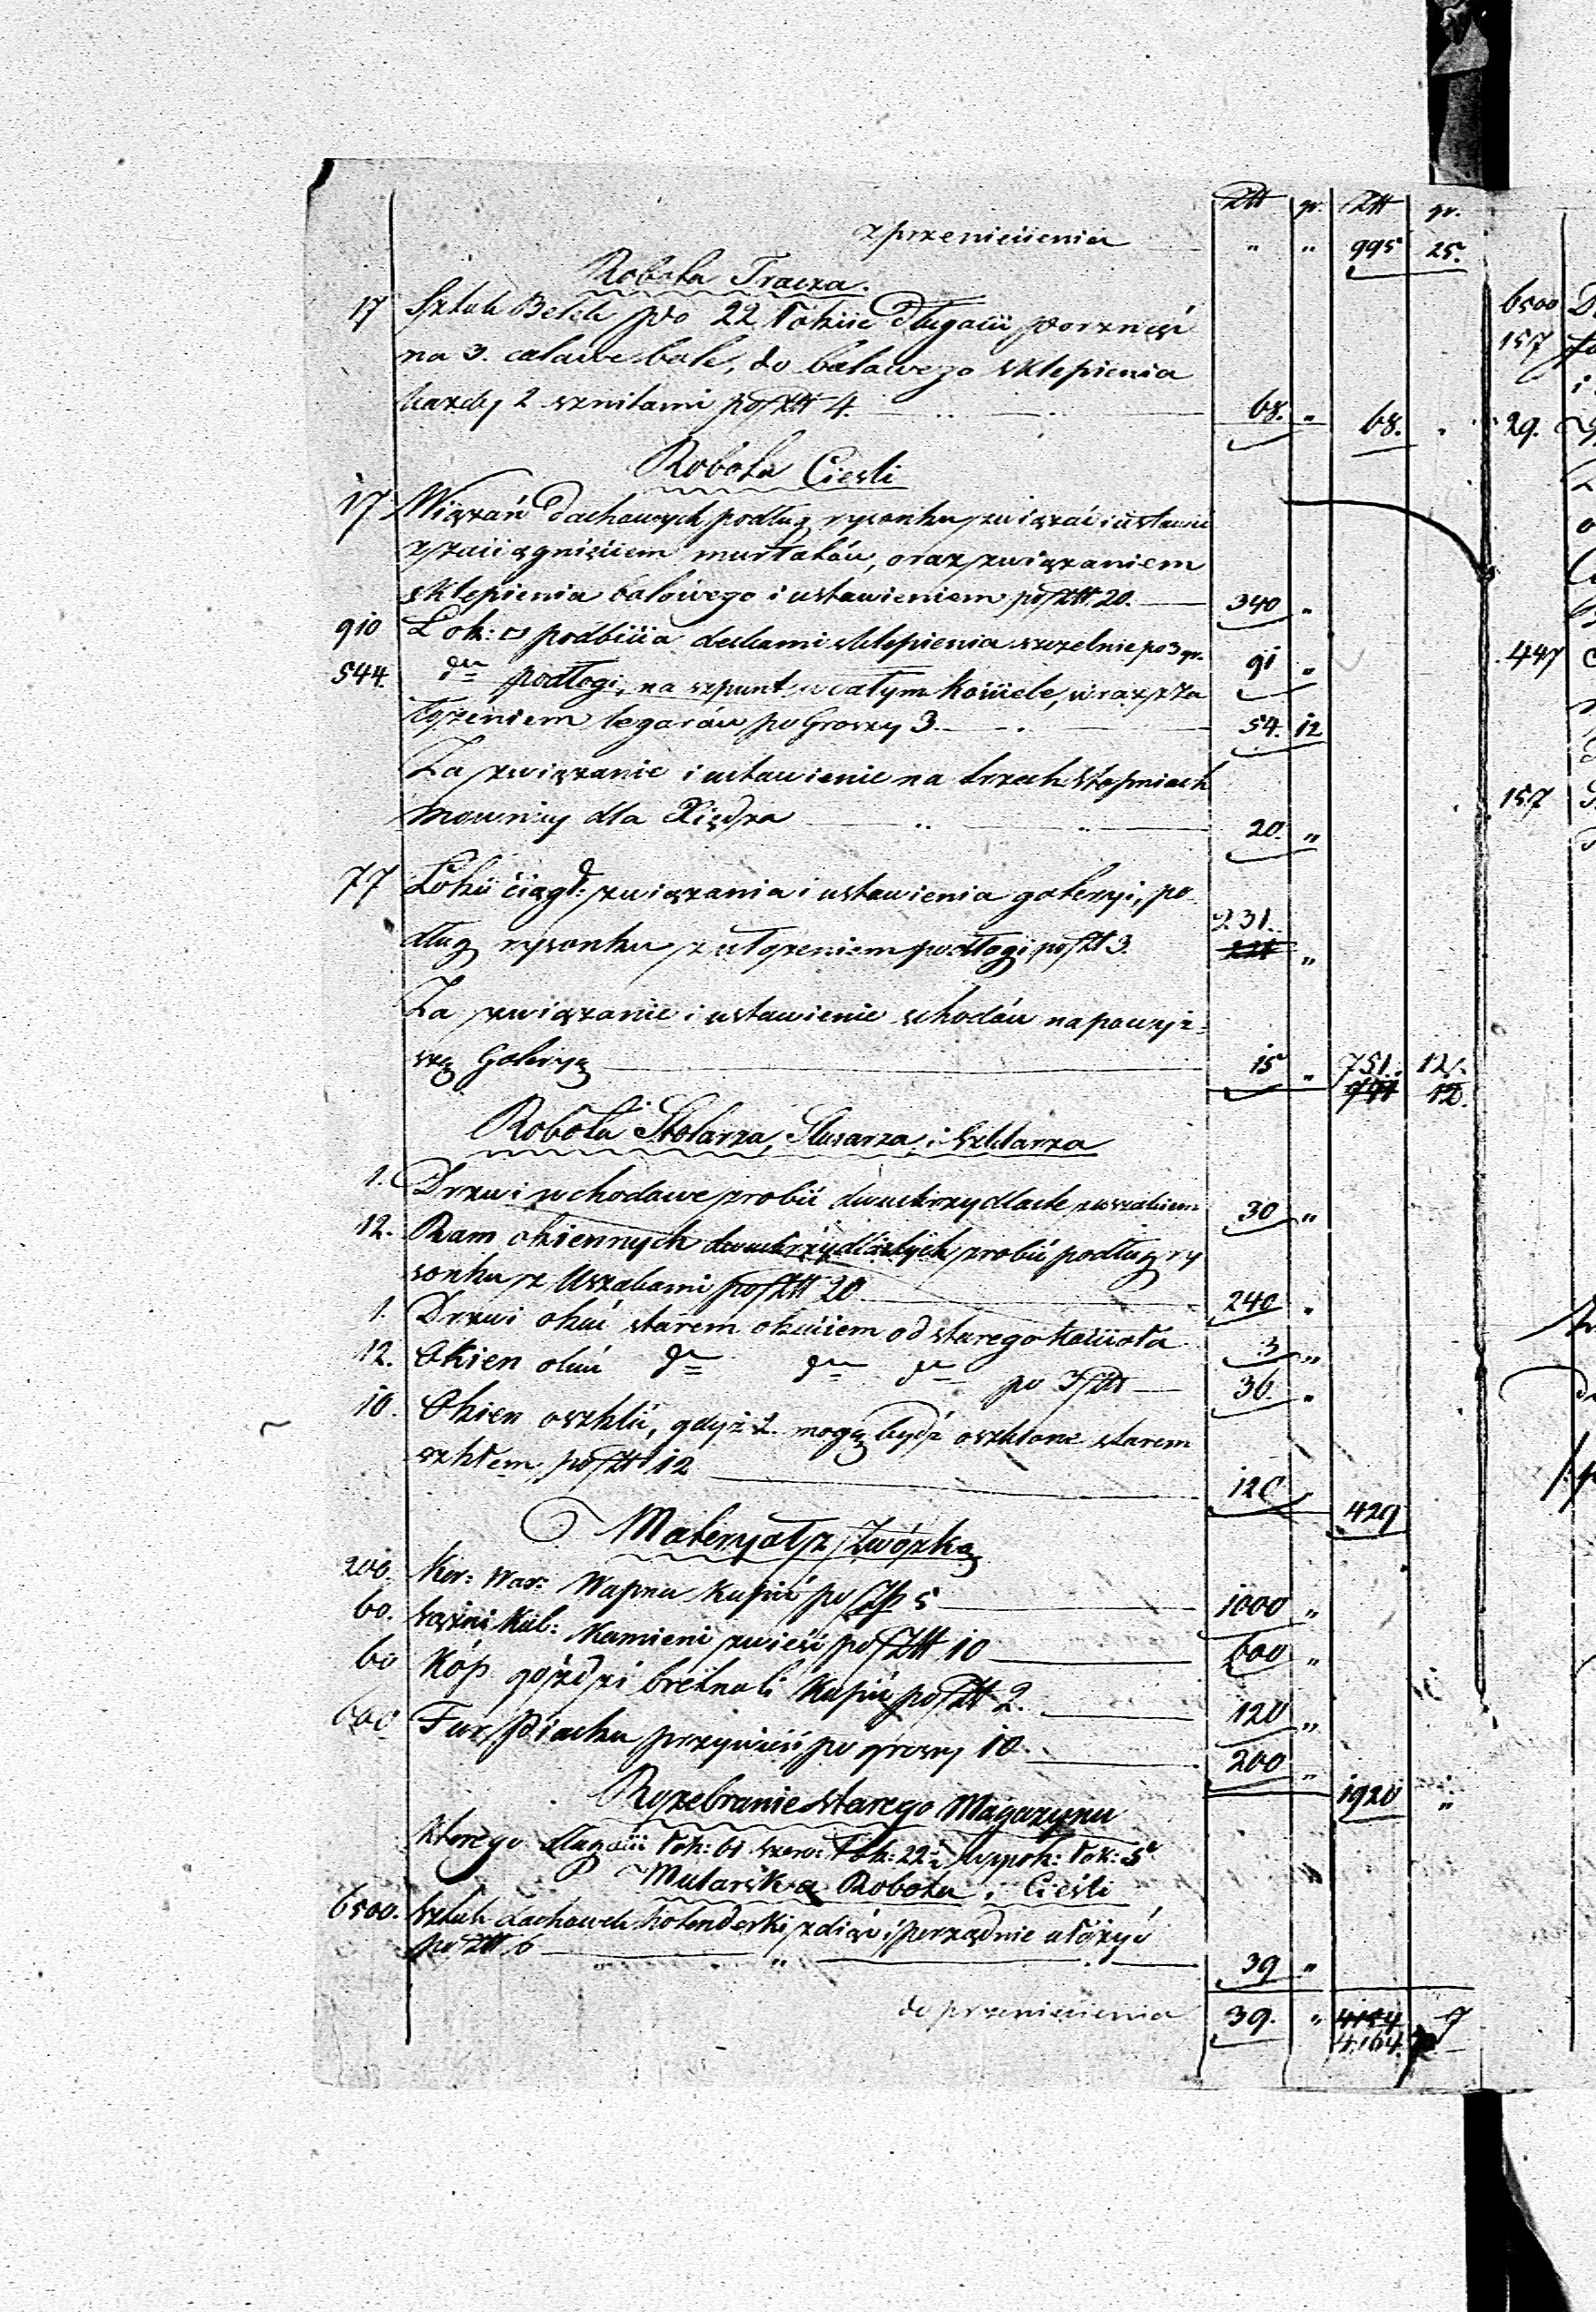 Ztt gr. Ztt gr.
z przeniesienia " " 995 25.
Robota Tracza.
17 Sztuk Belek po 22 łokcie długości porznąć
na 3. calowe bale, do balowego sklepienia
każdy 2 sznitami po Ztt 4. 68. " 68.
Robota Cieśli
17 Wiązań dachowych podług rysonku związać i ustawić
z zaciągnięciem murłatów, oraz związaniem
sklepienia balowego i ustawieniem po Ztt. 20. 340 "
910 Łok: □ podbicia deskami sklepienia szczelnie po 3 gr. 91 "
544. dto podłogi, na szpunt w całym kościele, wraz z za
łożeniem legarów po Groszy 3. 54. 12
Za związanie i ustawienie na trzech stopniach
mownicy dla Xiędza 20. "
77 Łokci ciągł: związania i ustawienia galeryi, po
231.
dług rysonku z ułożeniem podłogi po Ztt 3. "
Za związanie i ustawienie schodów na powyż=
szą Galeryą 15 " 751. 12.
12.
Robota Stolarza, Slusarza i Szklarza
1. Drzwi wchodowe zrobić dwuskrzydlaste 30 "
12. Ram okiennych dwuskrzydlastych zrobić podług ry
sonku z Uszakami po Ztt 20 240 "
1. Drzwi okuć starem okuciem od starego Kościoła 3 "
12. Okien okuć dto dto dto po 3 Ztt 36. "
10. Okien oszklić, gdyż 2. mogą bydź oszklone starem
szkłem po Ztt 12 120 " 429
Materyał z Zwózką
200. Kor: War: Wapna kupić po Złp 5 1000 "
60. Sążni Kub: Kamieni zwieść po Ztt 10 600 "
60 Kóp goździ bretnali kupić po Ztt 2. 120 "
600 Fur Piachu przywieść po groszy 10. 200 " 1920 "
Rozebranie starego Magazynu
którego długości łok: 61 szero: łok: 22 ½ wysok: łok: 5
Mularska Robota i Cieśli
6500. Sztuk dachówek holenderski zdiąć i porządnie ułożyć
po Ztt 6 39 "
do przeniesienia 39. " 7
4164.
6500
157
29.
447
157